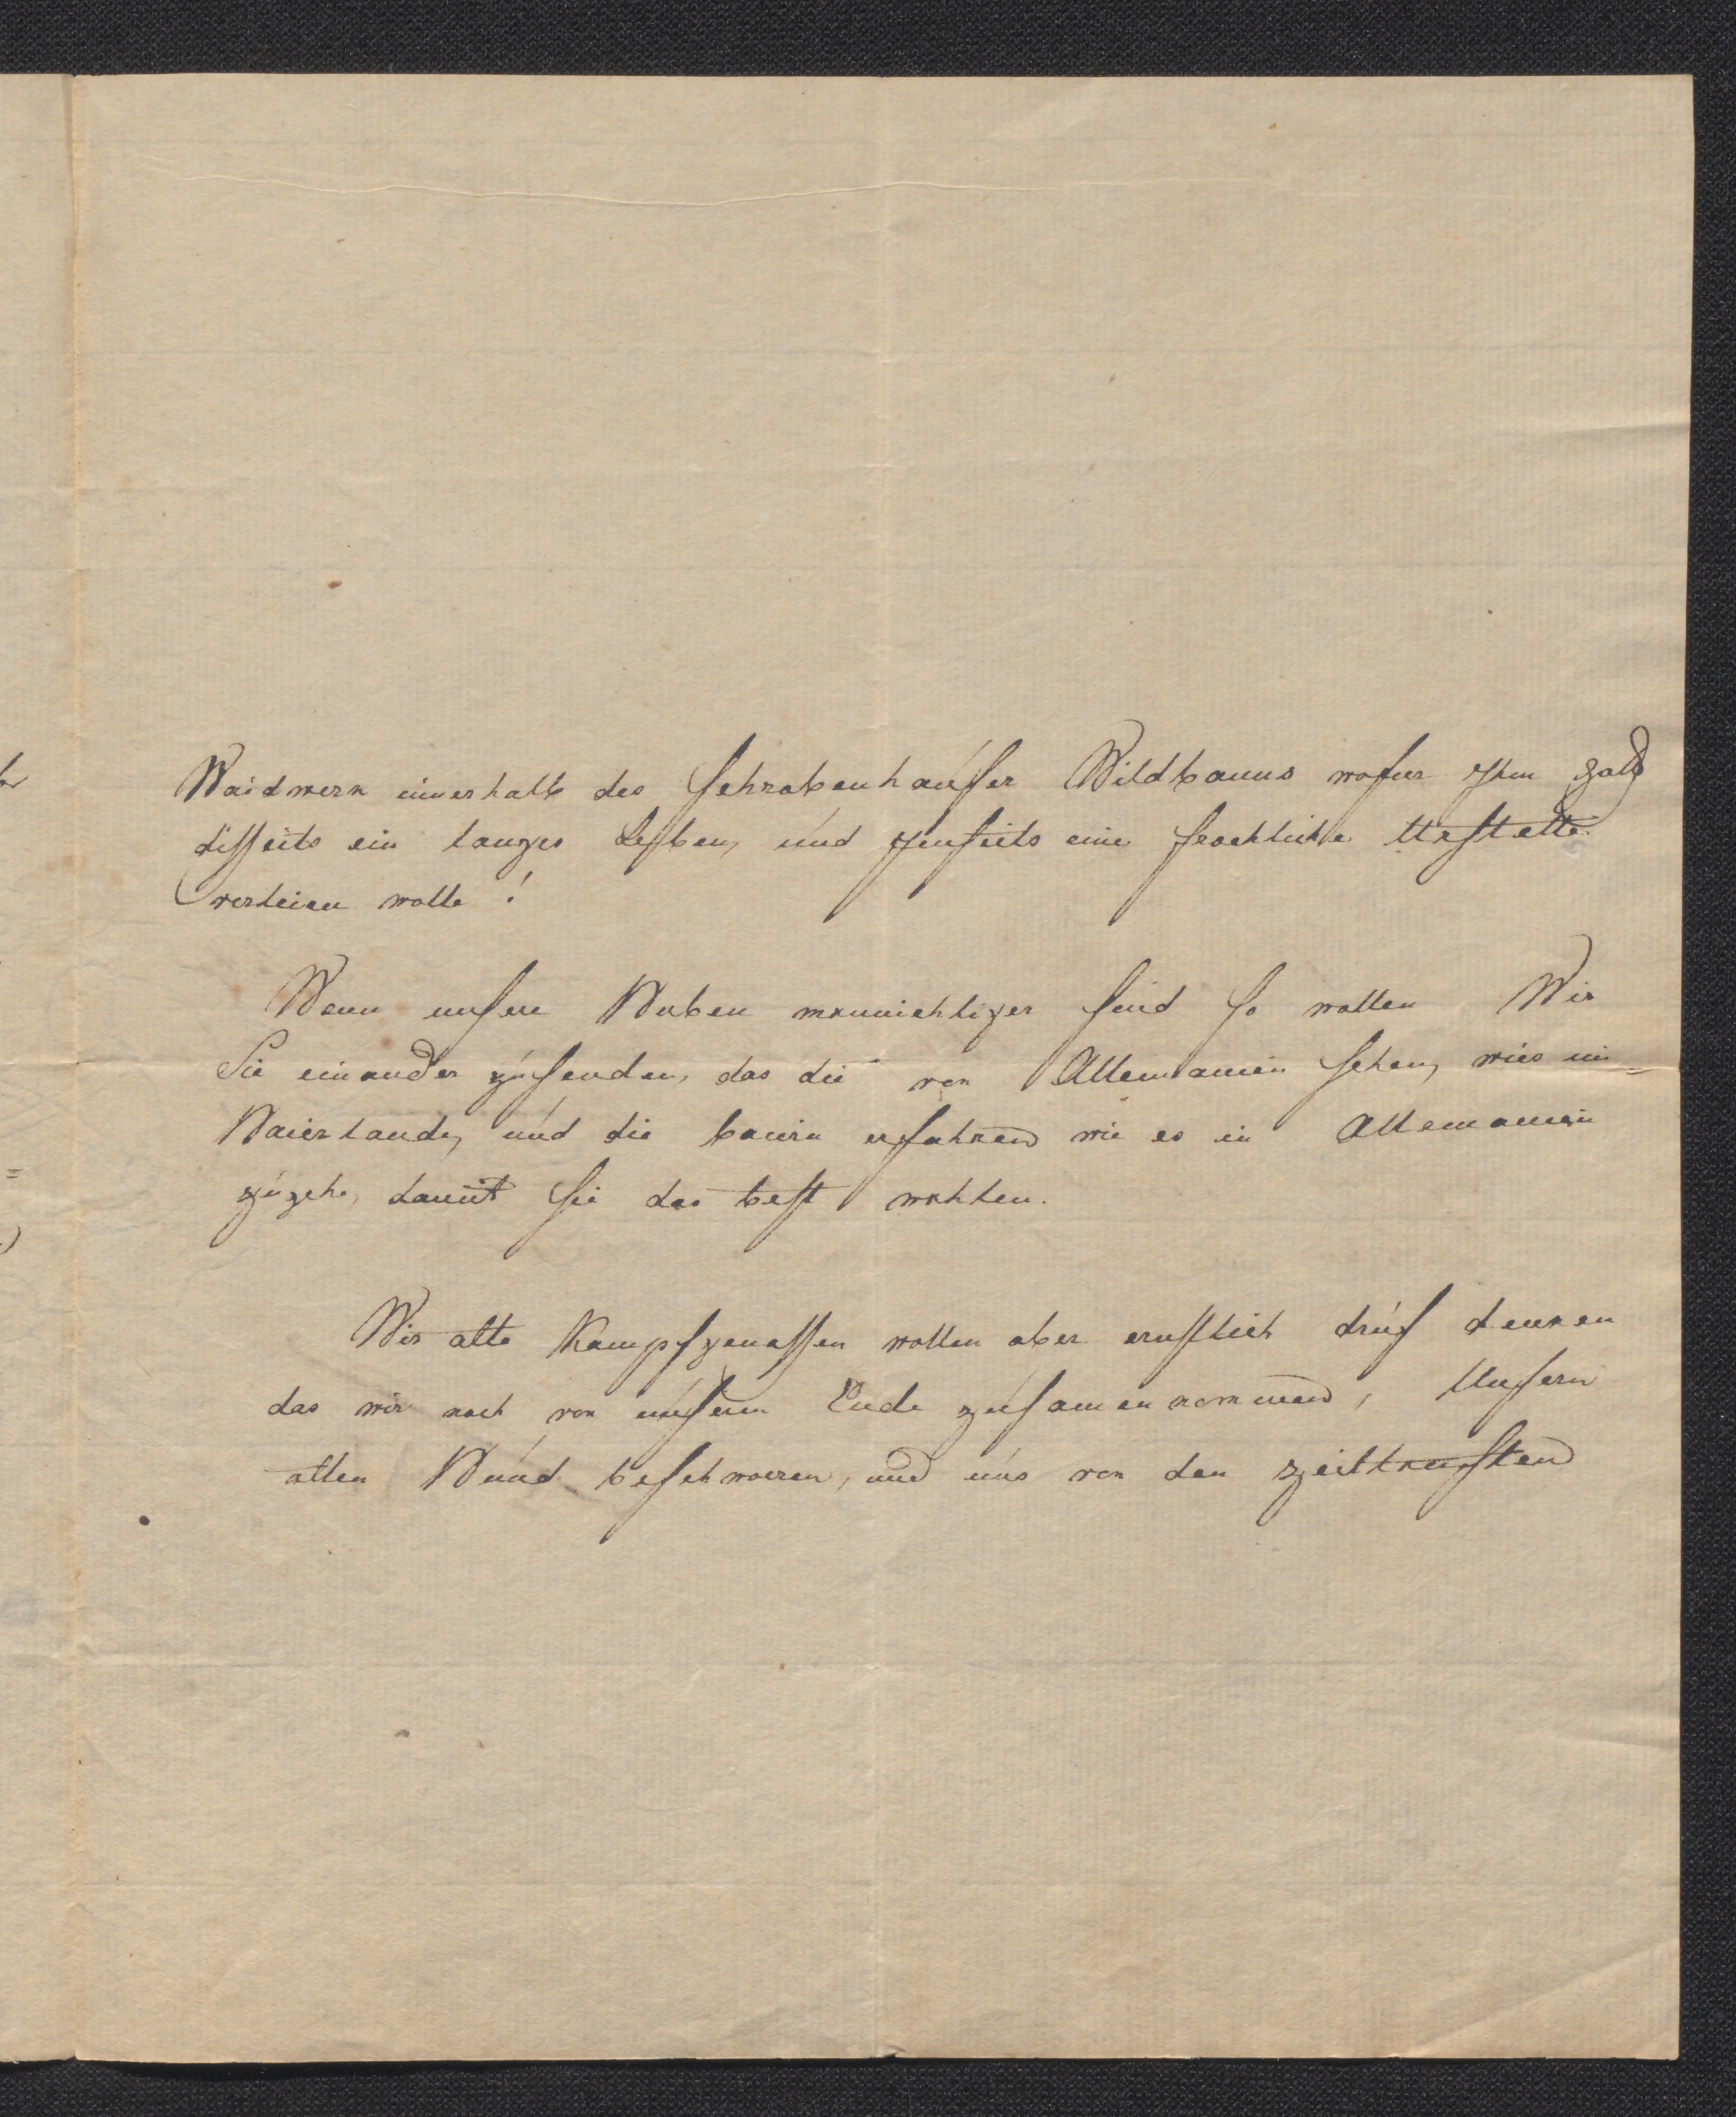 Waidwerk innerhalb des Schrobenhauser Wildbanns wofur yhm Gott
disseits ein langes Leben, und yenseits eine froehliche Urstette
verleien wolle!
Wenn unsere Buben mannichtiger sind so wollen Wir
Sie einander zusenden, das die von Allemanien sehen, wies im
Baierlande, und die baiern erfahren wie es in Allemanien
zugehe, damit sie das best wehlen.
Wir alte Kampfgenossen wollen aber ernstlich druf denken
das wir noch vor unserm Ende zusamenkommen, Unsern
alten Bund beschwoeren, und uns von den zeitleuften